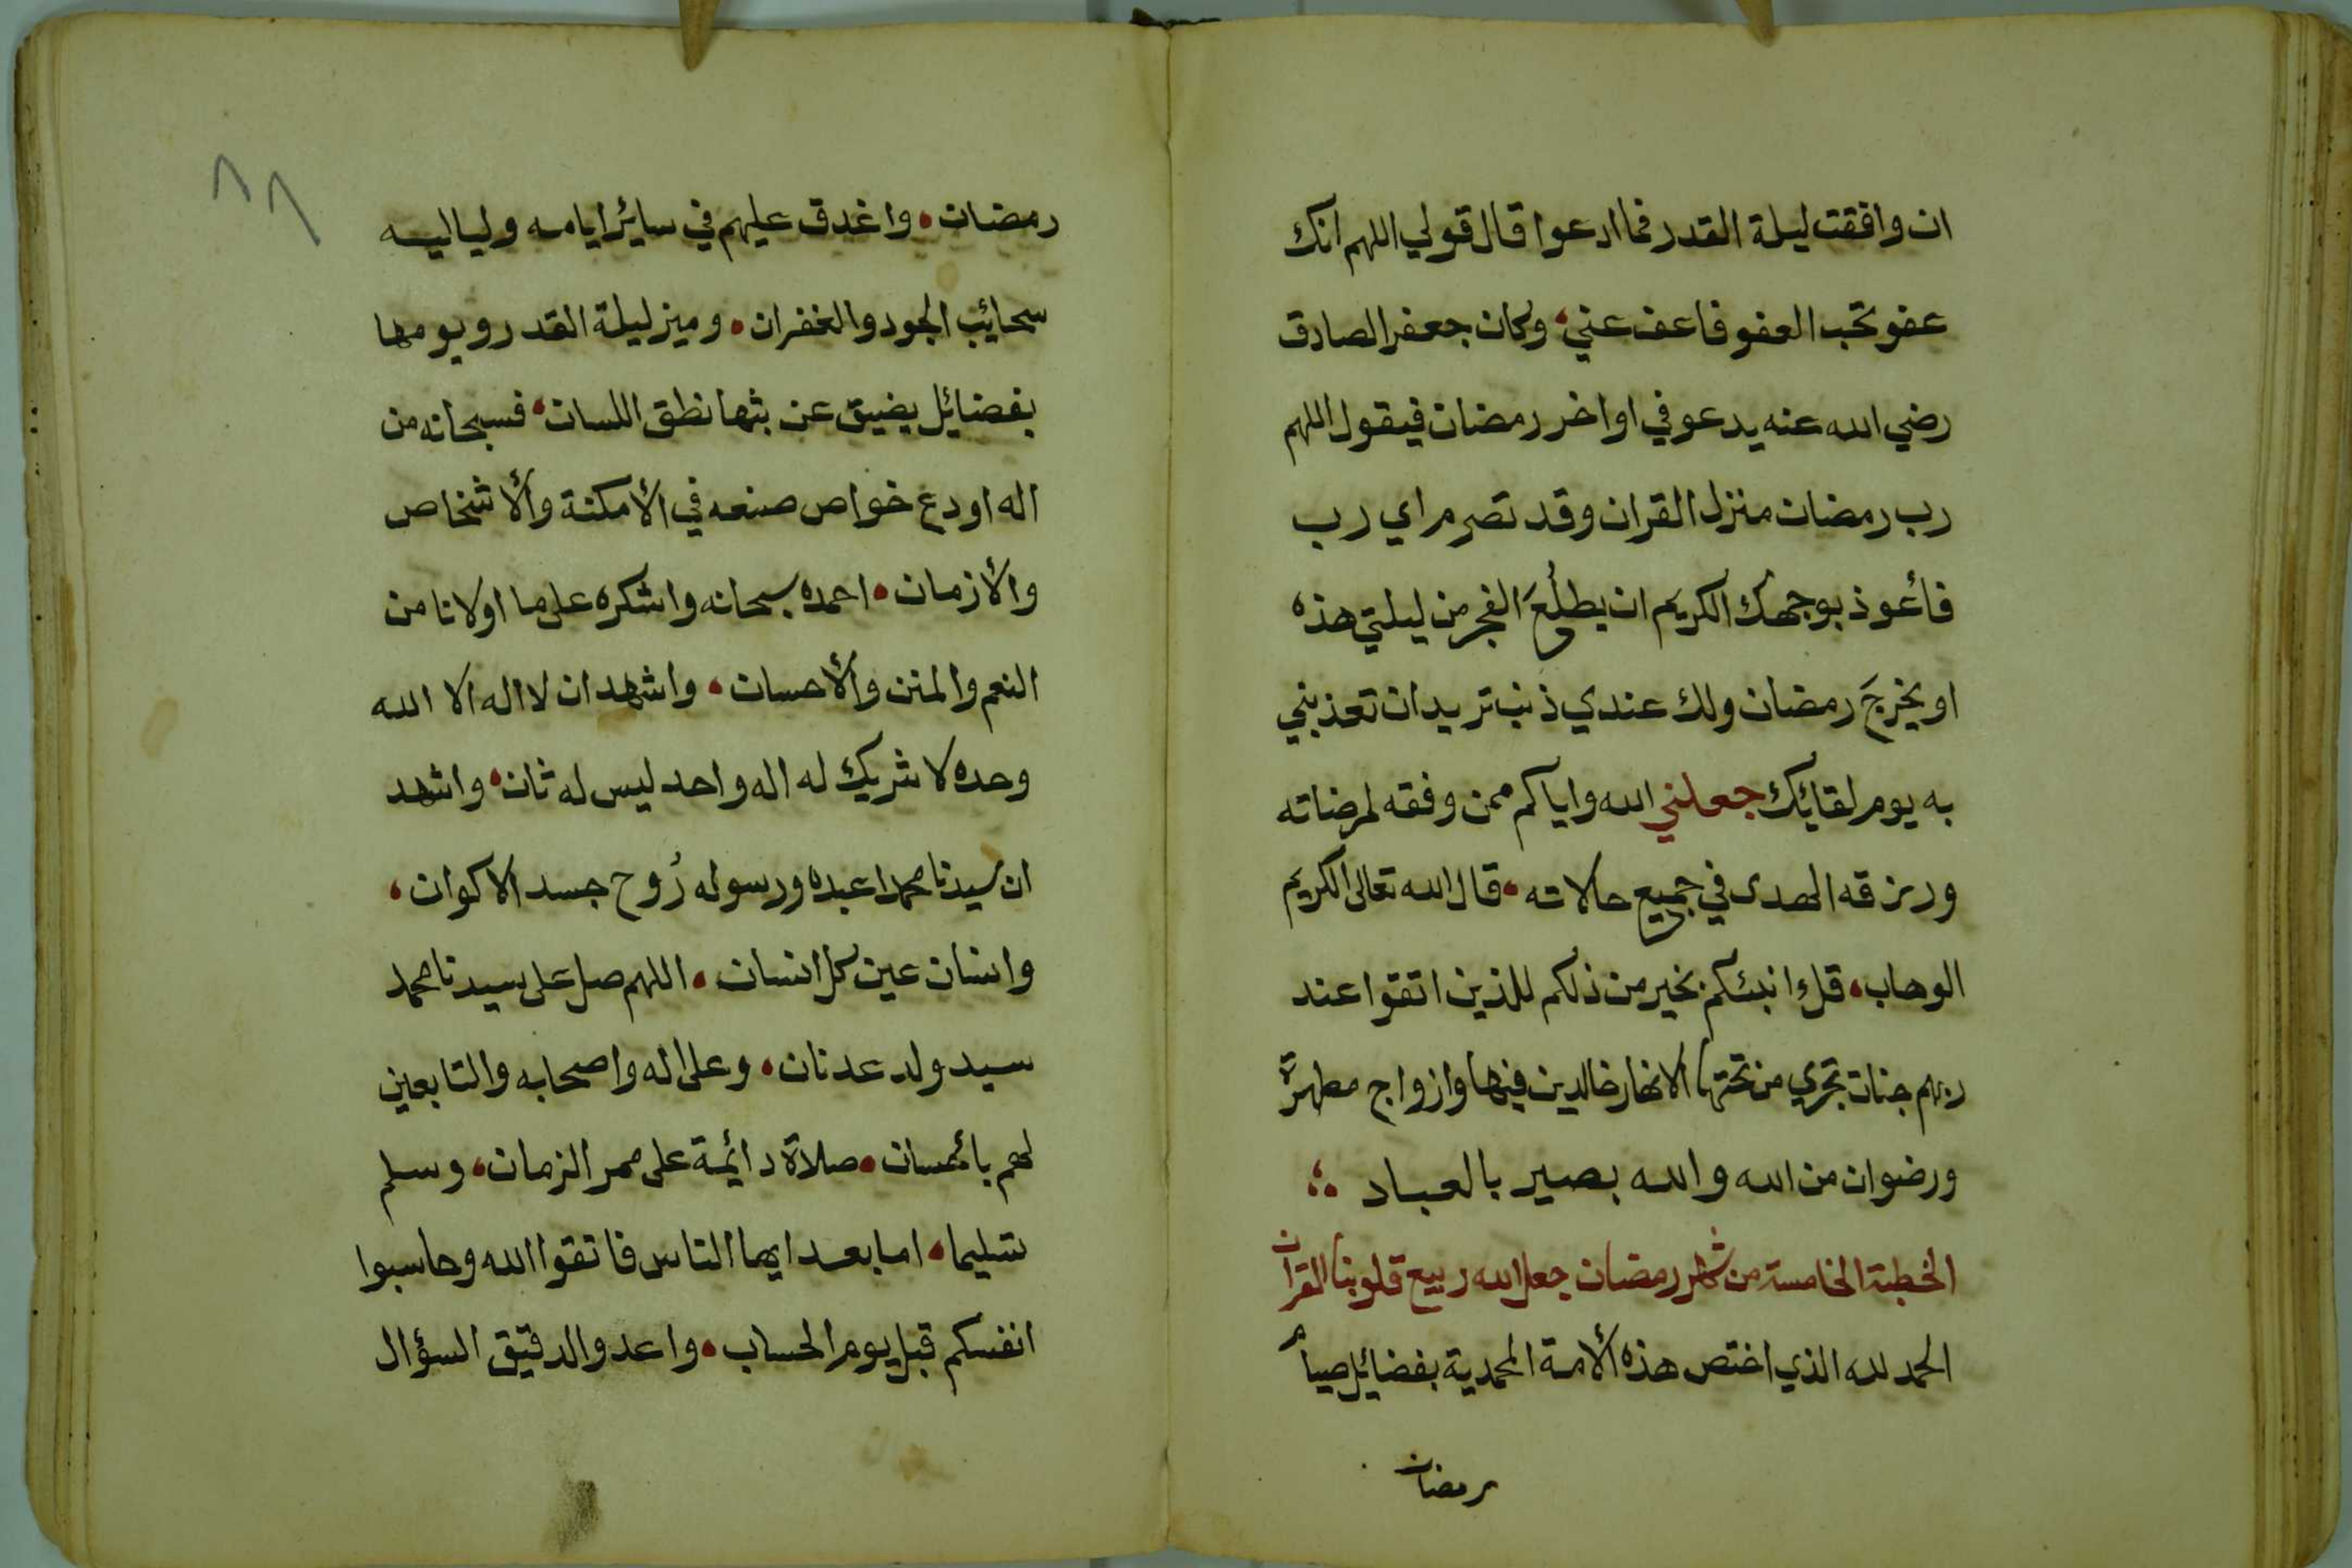 ان وافقت ليلة القدر فما ادعوا قال قولي اللهم انك
عفو تحب العفو فاعف عني، وكان جعفر الصادق
رضي الله عنه يدعو في اواخر رمضان فيقول اللهم
رب رمضان منزل القران وقد تصرم اي رب
فأعوذ بوجهك الكريم ان يطلُعَ الفجر من ليلتي هذه
او يخرجَ رمضان ولك عندي ذنب تريد ان تعذبني
به يوم لقائك جعلني الله واياكم ممن وفقه لمرضاته
ورزقه الهدى في جميع حالاته، قال الله تعالى الكريم
الوهاب، قل ءانبئكم بخير من ذلكم للذين اتقوا عند
ربهم جنات تجري من تحتها الانهار خالدين فيها وازواج مطهرة
ورضوان من الله والله بصير بالعباد
الخطبة الخامسة من شهر رمضان جعل الله ربيع قلوبنا القران
الحمد لله الذي اختص هذه الأمة المحمدية بفضائل صيام
رمضان
٨٨
رمضان، واغدق عليهم في سائر ايامه ولياليه
سحائب الجود والغفران، وميز ليلة القدر ويومها
بفضائل يضيق عن بثها نطق اللسان، فسبحانه من
اله اودع خواص صنعه في الأمكنة والأشخاص
والأزمان، احمده سبحانه واشكره على ما اولانا من
النعم والمنن والأحسان، واشهد ان لا اله الا الله
وحده لا شريك له اله واحد ليس له ثان، واشهد
ان سيدنا محمدا عبده ورسوله رُوح جسد الاكوان،
وانسان عين كل انسان، اللهم صل على سيدنا محمد
سيد ولد عدنان، وعلى اله واصحابه والتابعين
لهم بأحسان، صلاة دائمة على ممر الزمان، وسلم
تسليما، اما بعد ايها الناس فاتقوا الله وحاسبوا
انفسكم قبل يوم الحساب، واعدوا لدقيق السؤال